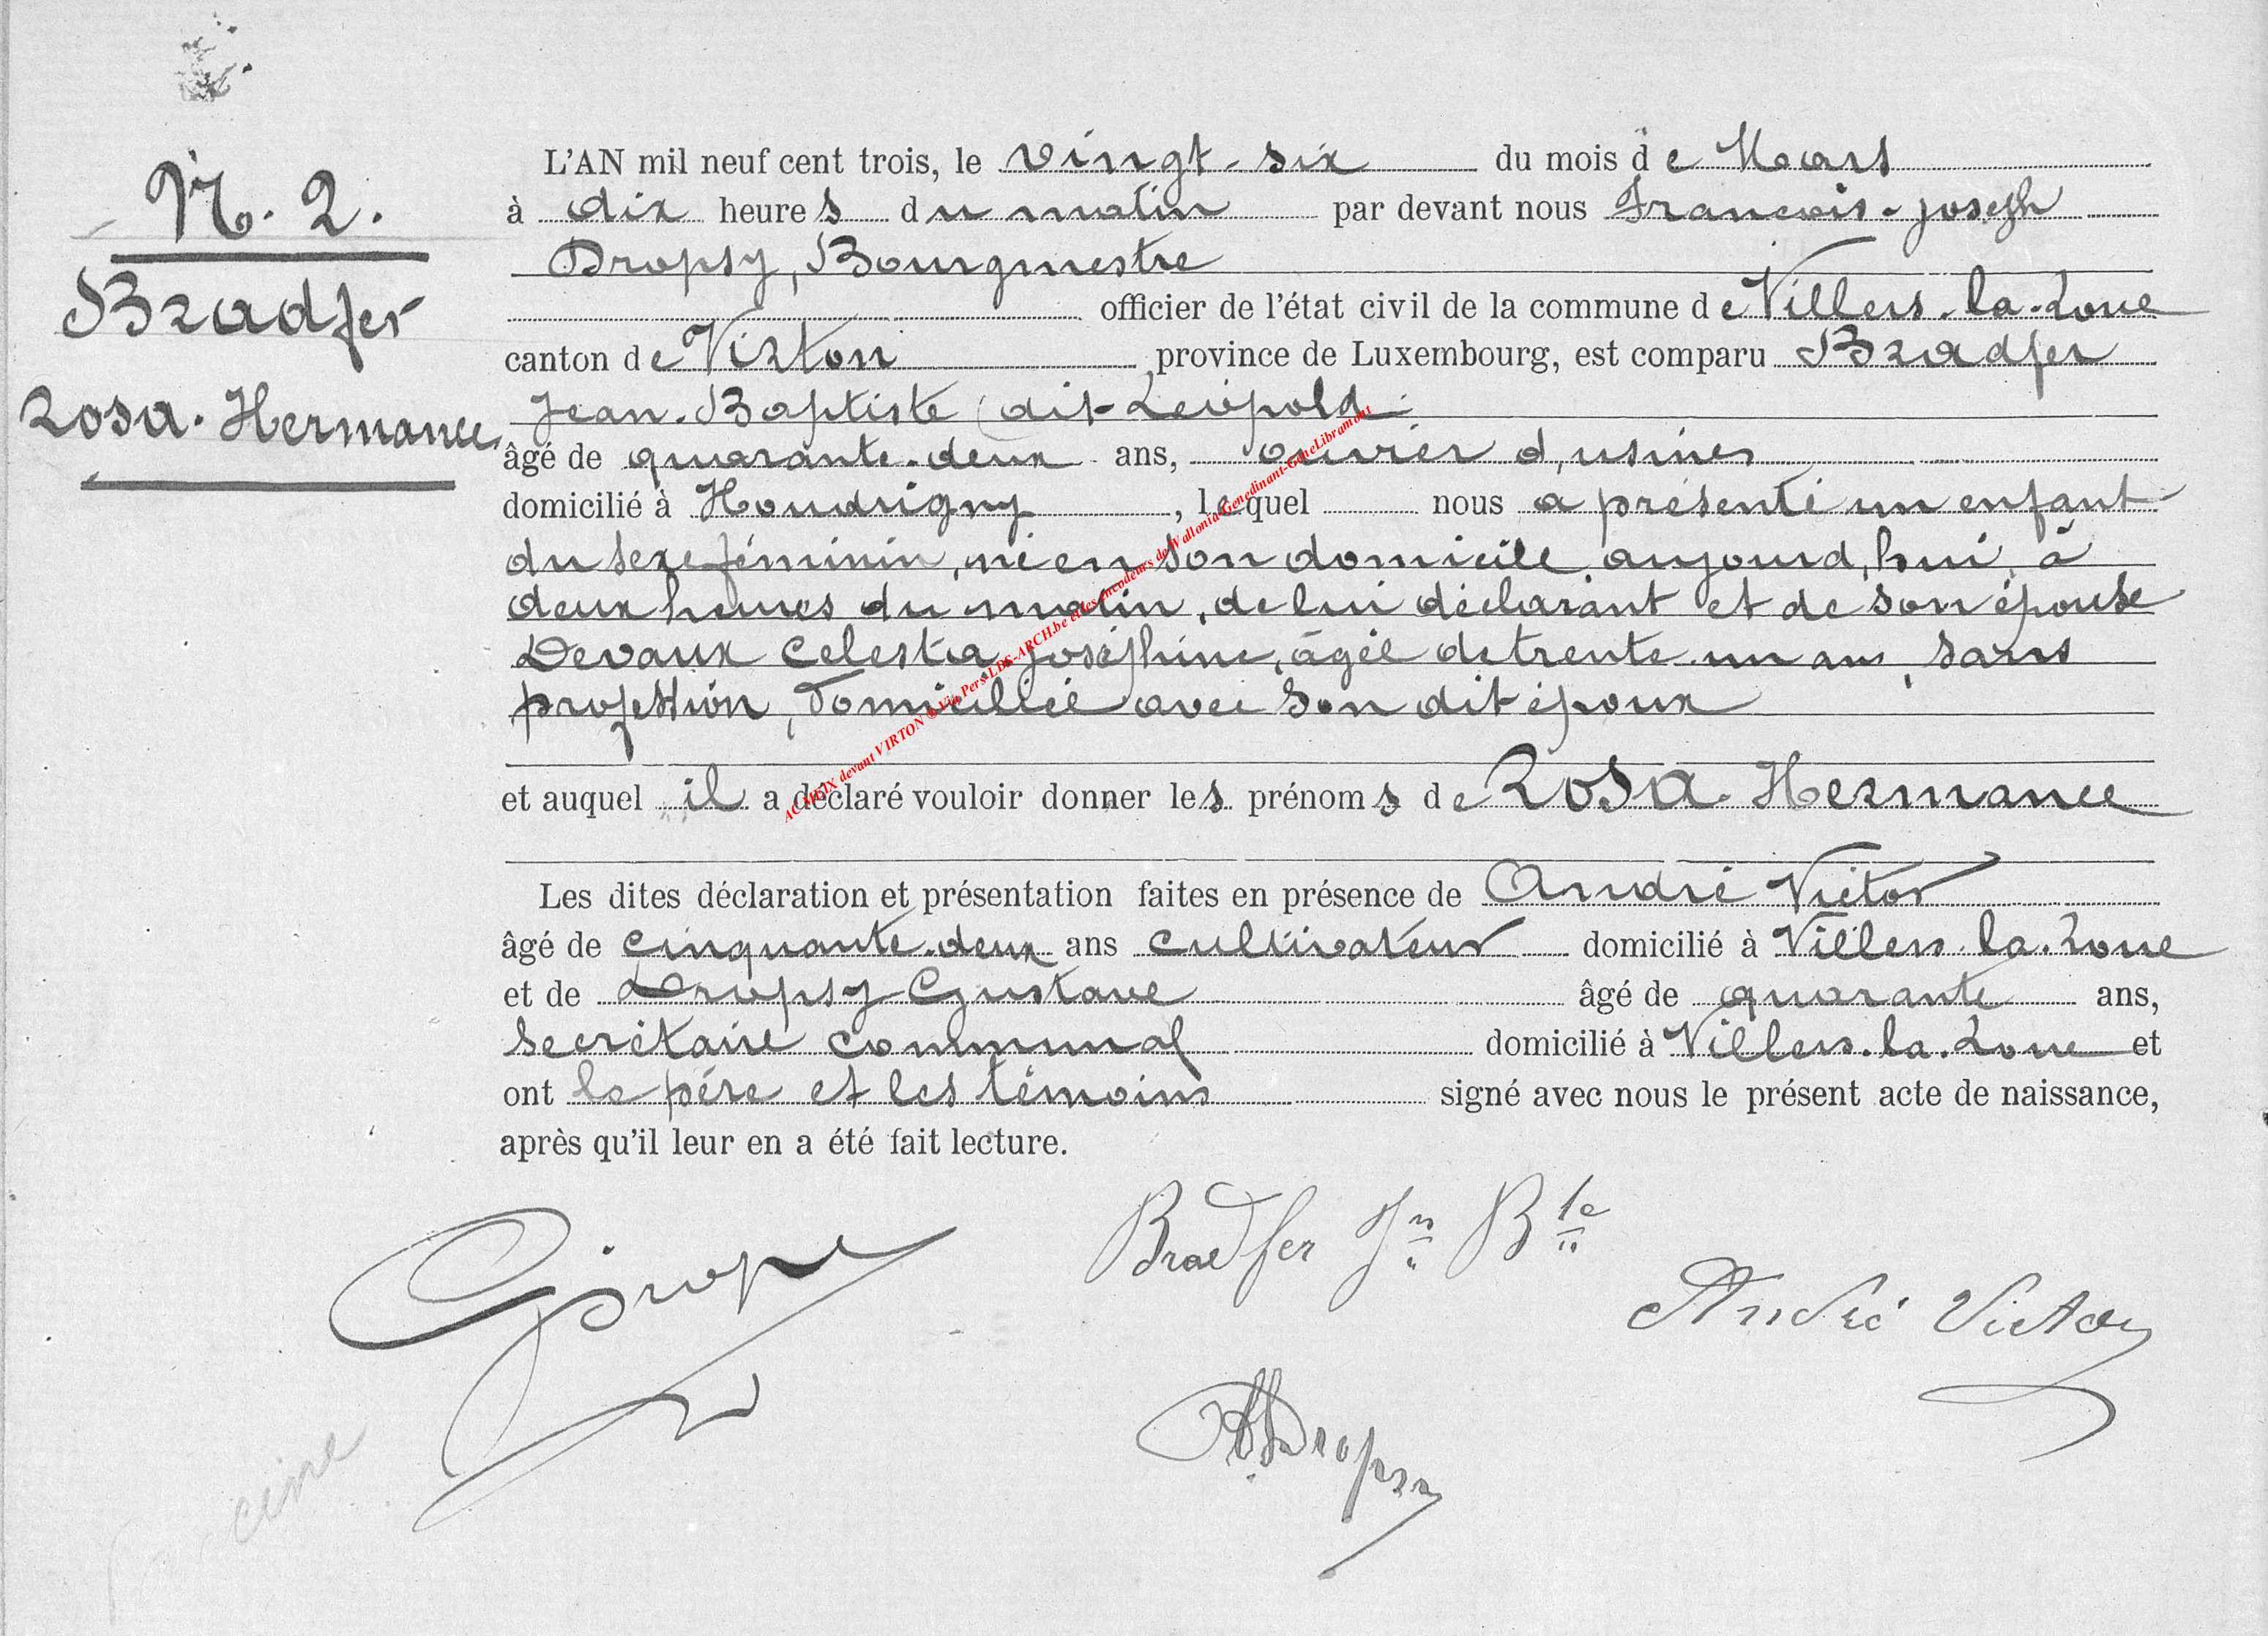 N. 2.
Bradfer
Rosa. Hermance
L'AN mil neuf cent trois, le vingt-six du mois de Mars
à dix heures du matin par devant nous Francois-joseph
Dropsy, Bourgmestre
officier de l'état civil de la commune de Villers-la-Loue
canton de Virton province de Luxembourg, est comparu Bradfer
Jean-Baptiste (dit Léopold
âgé de quarante-deux ans, ouvrier d,usines
domicilié à Houdrigny, lequel nous a présenté un enfant
du sexe féminin, né en son domicile aujourd,hui, à
deux heures du matin, de lui déclarant et de son épouse
Devaux Celestia joséphine, agée de trente-un ans, sans
profession, domiciliée avec son dit époux
et auquel il a déclaré vouloir donner les prénoms de Rosa. Hermance
Les dites déclaration et présentation faites en présence de André Victor
âgé de cinquante-deux ans cultivateur domicilié à Villers-la-Loue
et de Dropsy Gustave âgé de quarante ans,
secrétaire communal domicilié à Villers-la-Loue et
ont le père et les témoins signé avec nous le présent acte de naissance,
après qu'il leur en a été fait lecture.
AC MEIX devant VIRTON © Via Pers-LDS-ARCH.be et les encodeurs de Wallonia-Genedinant-GeneLibramont
Bradfer Jn Bte
GDropsy
André Victor
Dropsy